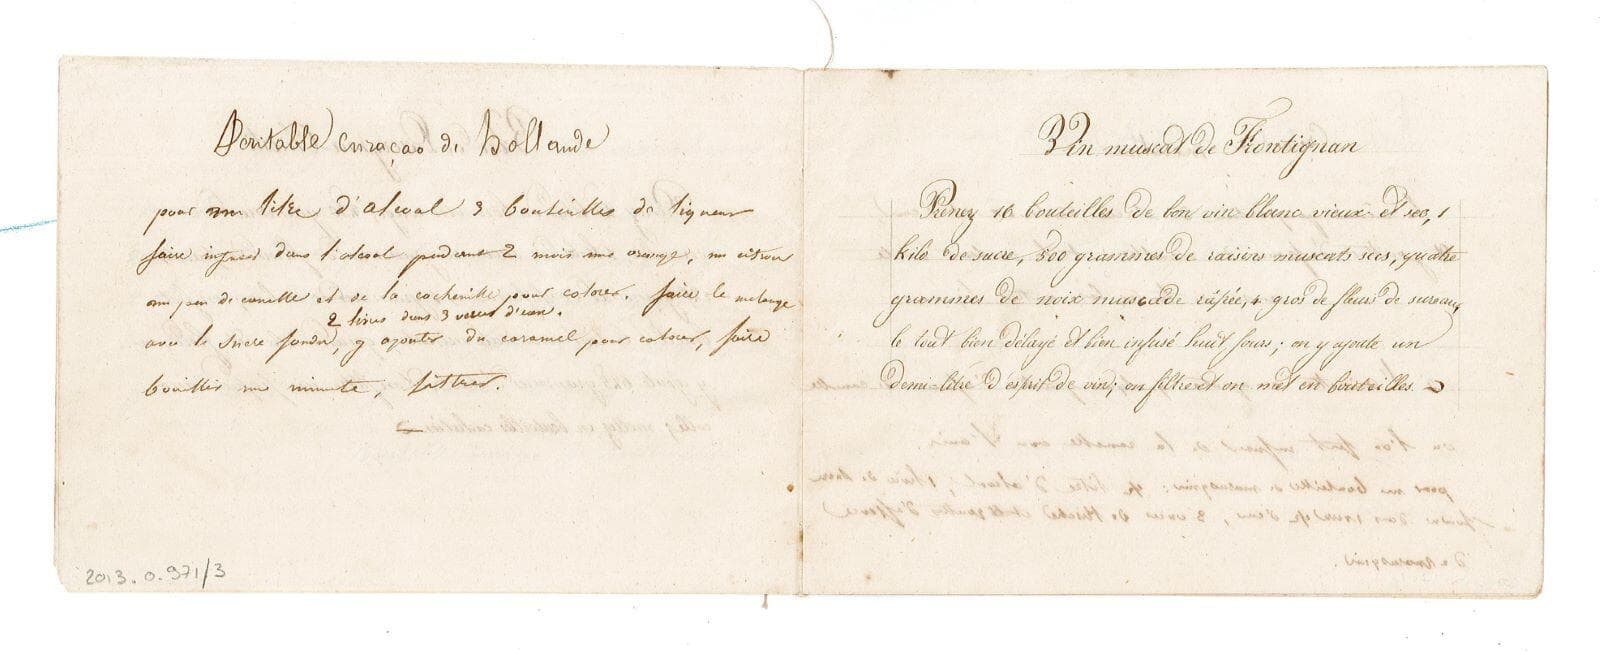 Veritable curaçao de hollande
pour un litre d'alcool 3 bouteilles de liqueur
faire infuser dans l'alcool pendant 2 mois une orange, un citron
un peu de canelle et de la cochenille pour colorer. faire le melange
2 livres dans 3 verres d'eau.
avec le sucre fondu, y ajouter du caramel pour colorer, faire
bouillir une minute, filtrer.
2013.0.971/3
Vin muscat de Frontignan
Prenez 16 bouteilles de bon vin blanc vieux et sec, 1
kilo de sucre, 500 grammes de raisins muscats secs, quatre
grammes de noix muscade râpée, 4 gros de fleurs de sureau,
le tout bien délayé et bien infusé huit jours; on y ajoute un
demi-litre d'esprit de vin; on filtre et on met en bouteilles.